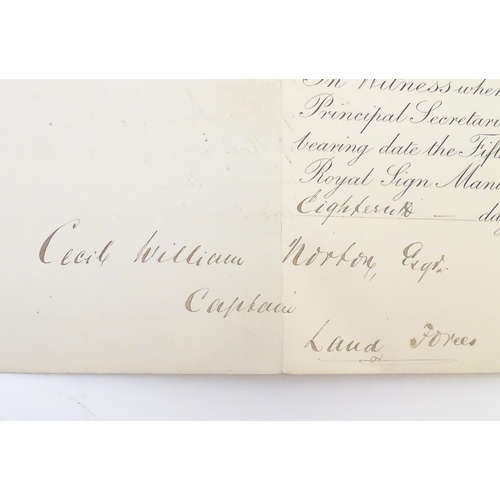 In Witness
Principal Secretari
bearing date the Fift
Royal Sign Manu
Eighteenth — da
Cecil William Norton, Esqr.
Captain
Land Forces